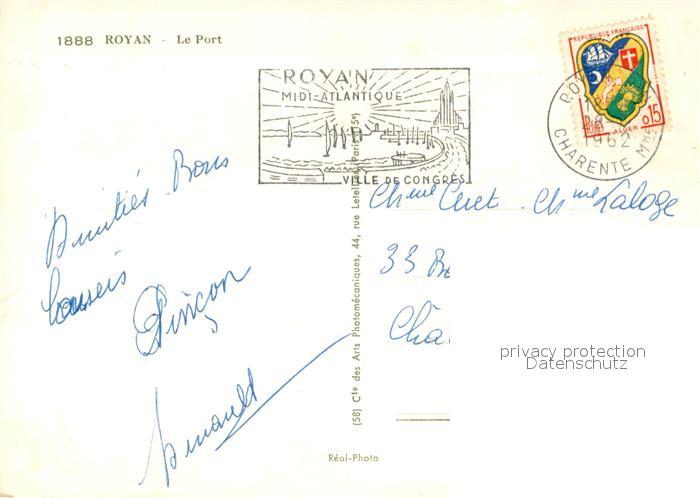 1888 ROYAN - Le Port
ROYAN
MIDI-ATLANTIQUE
VILLE DE CONGRÈS
REPUBLIQUE FRANÇAISE
POSTES
ALGER
0,15
1962
CHARENTE MME
Amitiés Bons
baisers
Pinçon
(58) Cte des Arts Photomécaniques, 44, rue Letellier, Paris (15e)
Réal-Photo
33 B
Châ
privacy protection
Datenschutz